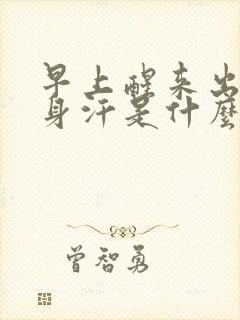 早上醒来出
身汗是什麽
曾智勇